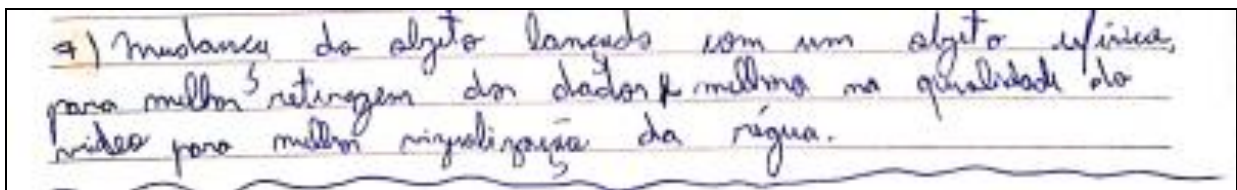 7) Mudança do objeto lançado com um objeto esférico,
para melhor retiragem dos dados e melhora na qualidade do
vídeo para melhor vizualização da régua.